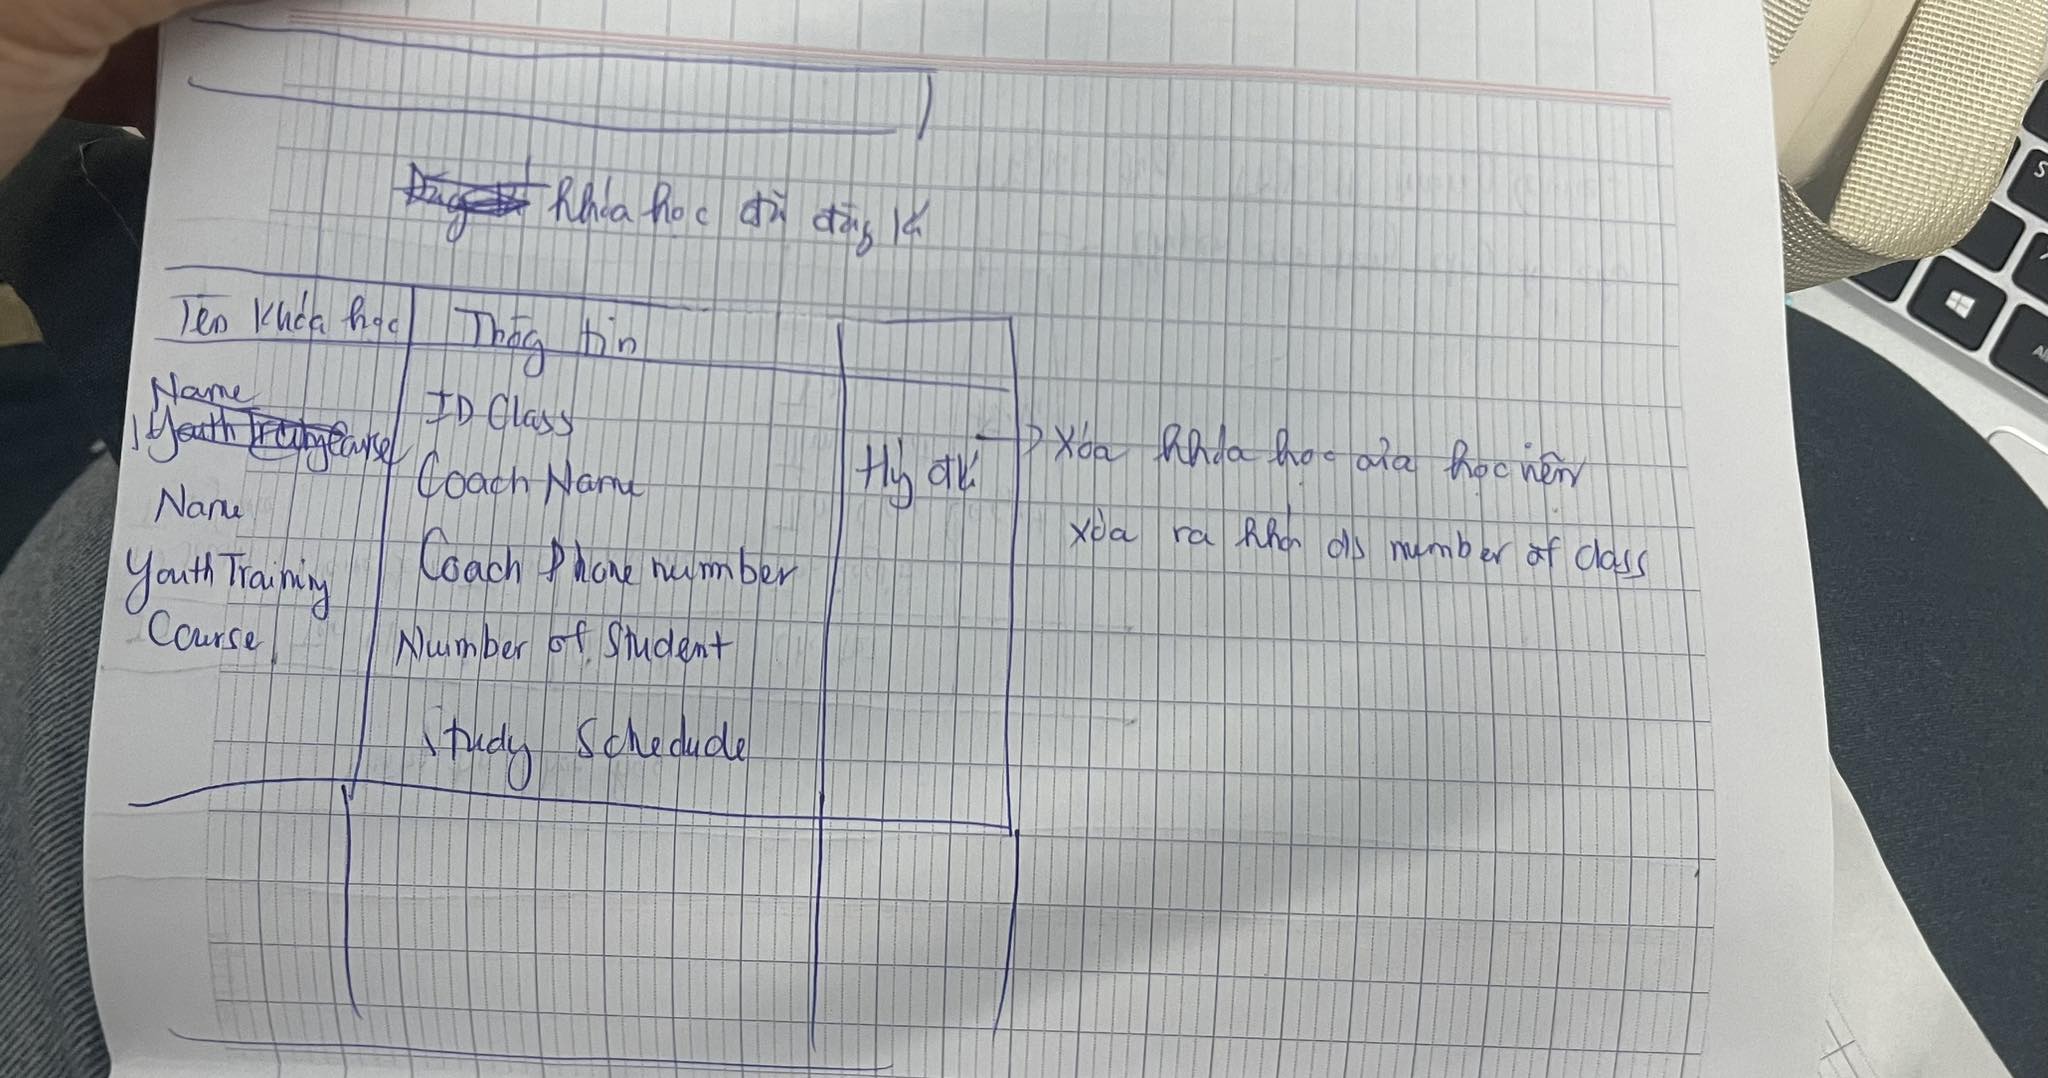 khóa học đã đăng kí
Tên khóa học
Thông tin
Name
Youth Training Course
Name
Youth Training
Course
ID Class
Coach Name
Coach Phone number
Number of Student
Study Schedude
Hủy đk
→ Xóa khóa học của học viên
xóa ra khỏi ds number of class